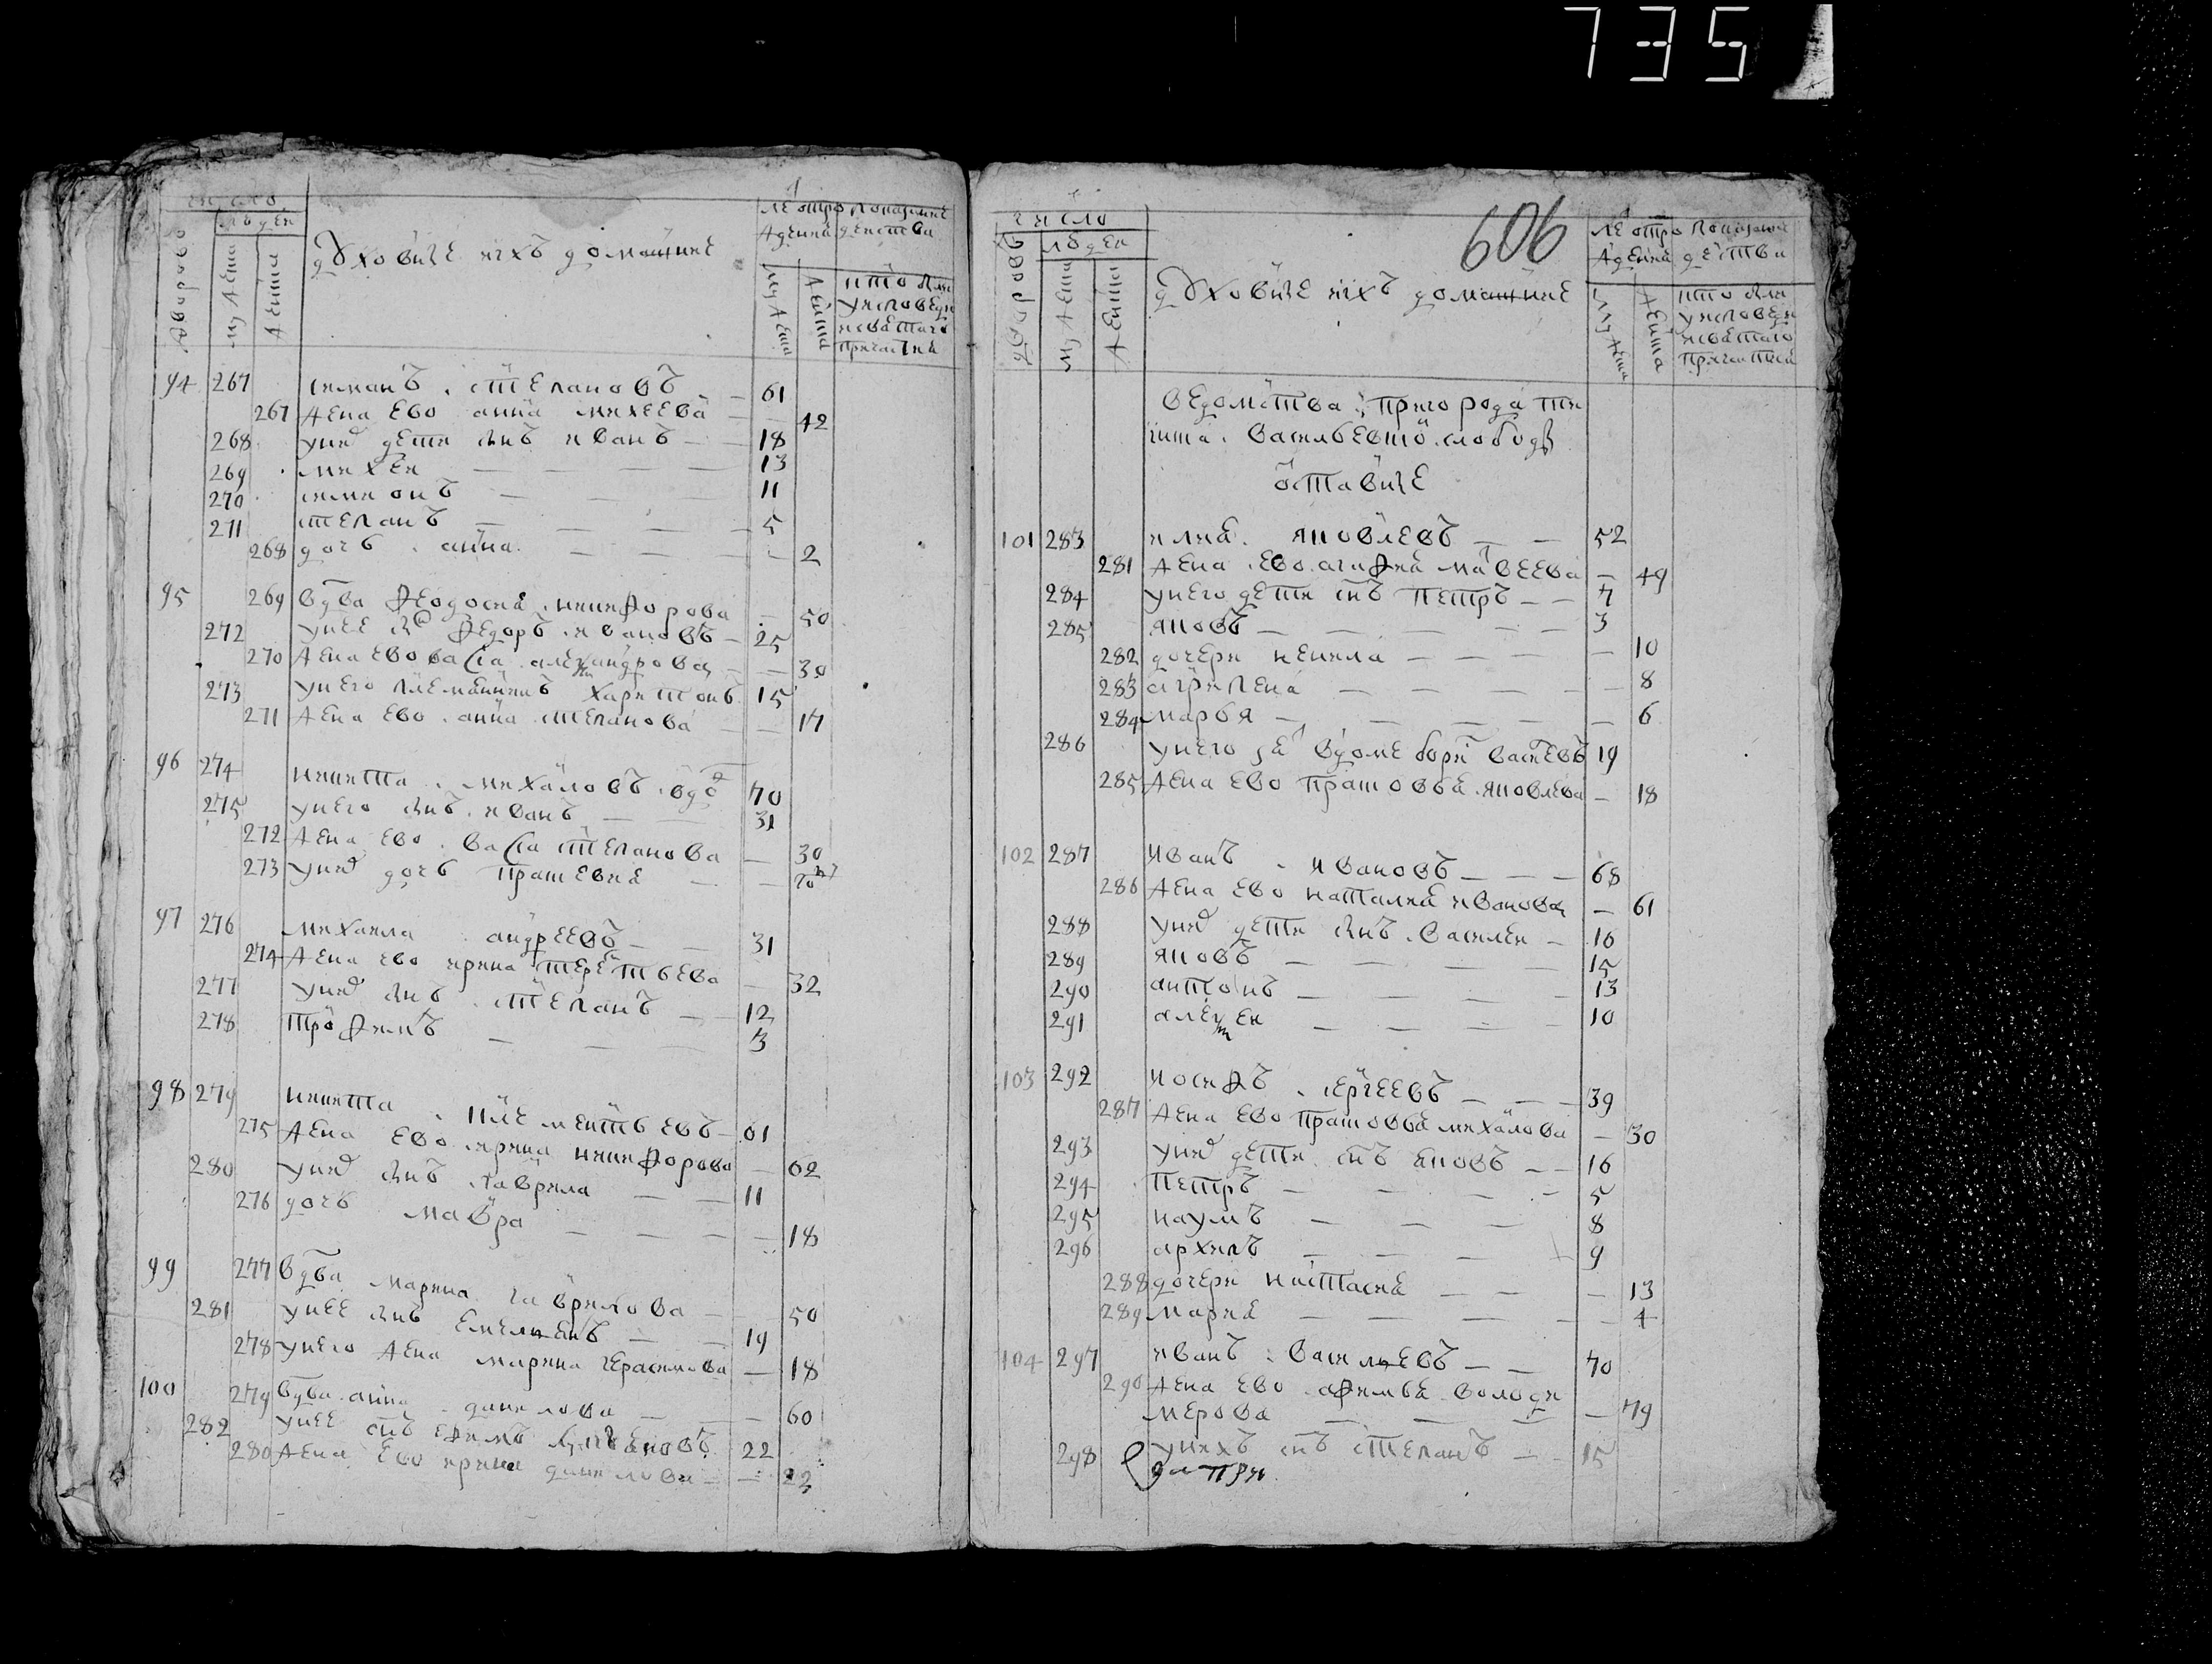 735
число
людеи
дворово
мужеска
женска
духовные ихъ домашние
лето рожденна
показание действа
мужеска
женска
кто был
у исповеди
и святаго
причастиа
94 267 симанъ степановъ — 61
267 жена ево анна михеева — 42
268 у них дети сынъ иванъ — 18
269 михеи — 13
270 симионъ — 11
271 степанъ — 5
268 дочь анна — 2
95 269 вдова феодосиа никифорова — 50
272 у нее сынъ федоръ ивановъ — 25
270 жена ево васса александрова — 30
273 у него племянникъ харитонъ 15
271 жена ево анна степанова — 17
96 274 никита михаиловъ вдовъ 70
275 у него сынъ иванъ — 31
272 жена ево васса степанова — 30
273 у них дочь прасковиа —
97 276 михаила андреевъ — 31
274 жена ево ирина терентьева — 32
277 у них сынъ степанъ — 12
278 трофимъ — 3
98 279 никита климентьевъ — 61
275 жена ево ирина никифорова — 62
280 у них сынъ гаврила — 11
276 дочь мавра — 18
99 277 вдова марина гаврилова — 50
281 у нее сынъ емельянъ — 19
278 у него жена марина герасимова — 18
100 279 вдова анна данилова — 60
282 у нее сынъ ефимъ 22
280 жена ево ирина данилова — 22
606
число
людеи
дворово
мужеска
женска
духовные ихъ домашние
лето рожденна
показание действа
мужеска
женска
кто был
у исповеди
и святаго
причастиа
ведомства пригорода тии
нска васильевской слободы
отставные
101 283 илиа яковлевъ — 52
281 жена ево агафиа матвеева — 49
284 у него дети сынъ петръ — 7
285 яковъ — 3
282 дочери ненила — 10
283 агрипена — 8
284 марья — 6
286 у него зять в доме борисъ васильевъ 19
285 жена ево прасковья яковлева — 18
102 287 иванъ ивановъ — 68
286 жена ево наталиа иванова — 61
288 у них дети сынъ василеи — 16
289 яковъ — 15
290 антонъ — 13
291 алексеи — 10
103 292 иосифъ сергеевъ — 39
287 жена ево прасковья михаилова — 30
293 у них дети сынъ яковъ — 16
294 петръ — 5
295 наумъ — 8
296 архипъ — 9
288 дочери настасиа — 13
289 мариа — 4
104 297 иванъ васильевъ — 70
290 жена ево афимья володи
мерова — 79
298 у нихъ сынъ степанъ — 15